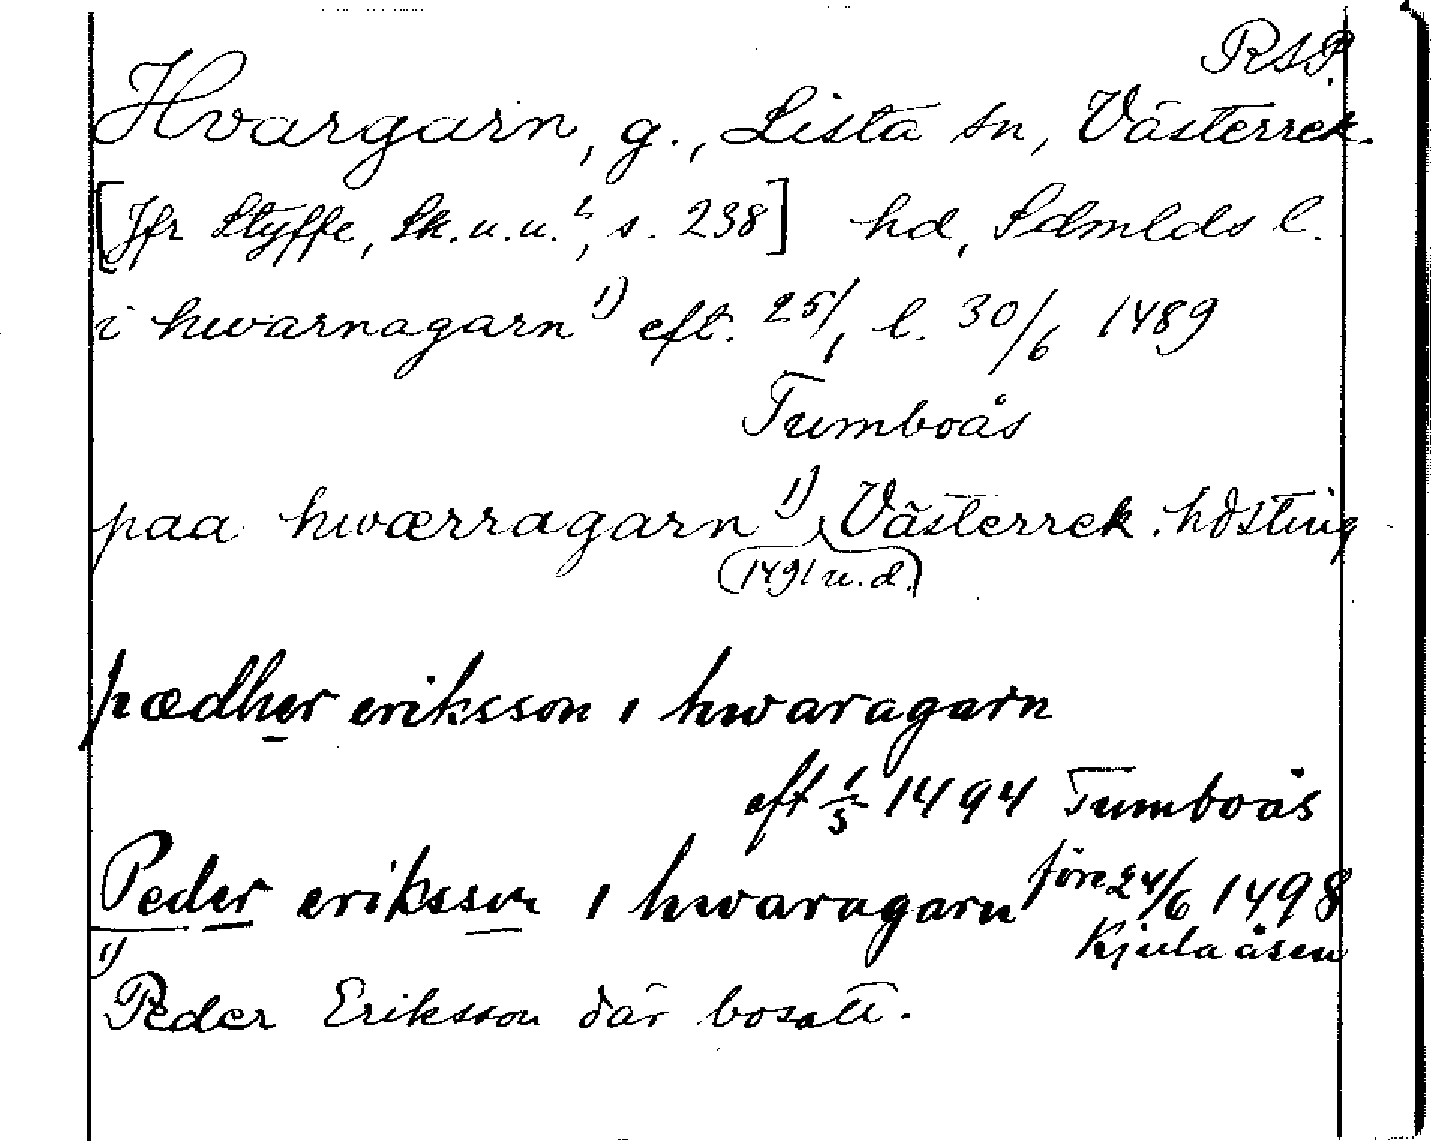 RAP.
Hvargarn, g., Lista sn, Västerrek.
[Jfr Styffe, Sk.u.u.², s. 238] hd, Sdmlds l.
i hwarnagarn 1) eft. 25/1 l. 30/6 1489
Tumboås
paa hwærragarn 1) Västerrek. hdsting
(1491 u.d.)
pædher eriksson i hwaragarn
eft 1/5 1494 Tumboås
Peder eriksson i hwaragarn före 24/6 1498
Kjulaåsen
1)
Peder Eriksson där bosatt.